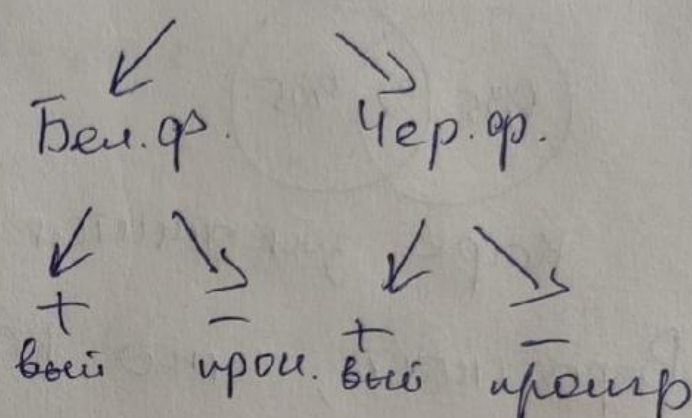 Бел.ф. Чер.ф.
+ - + -
выи прои. выи проигр